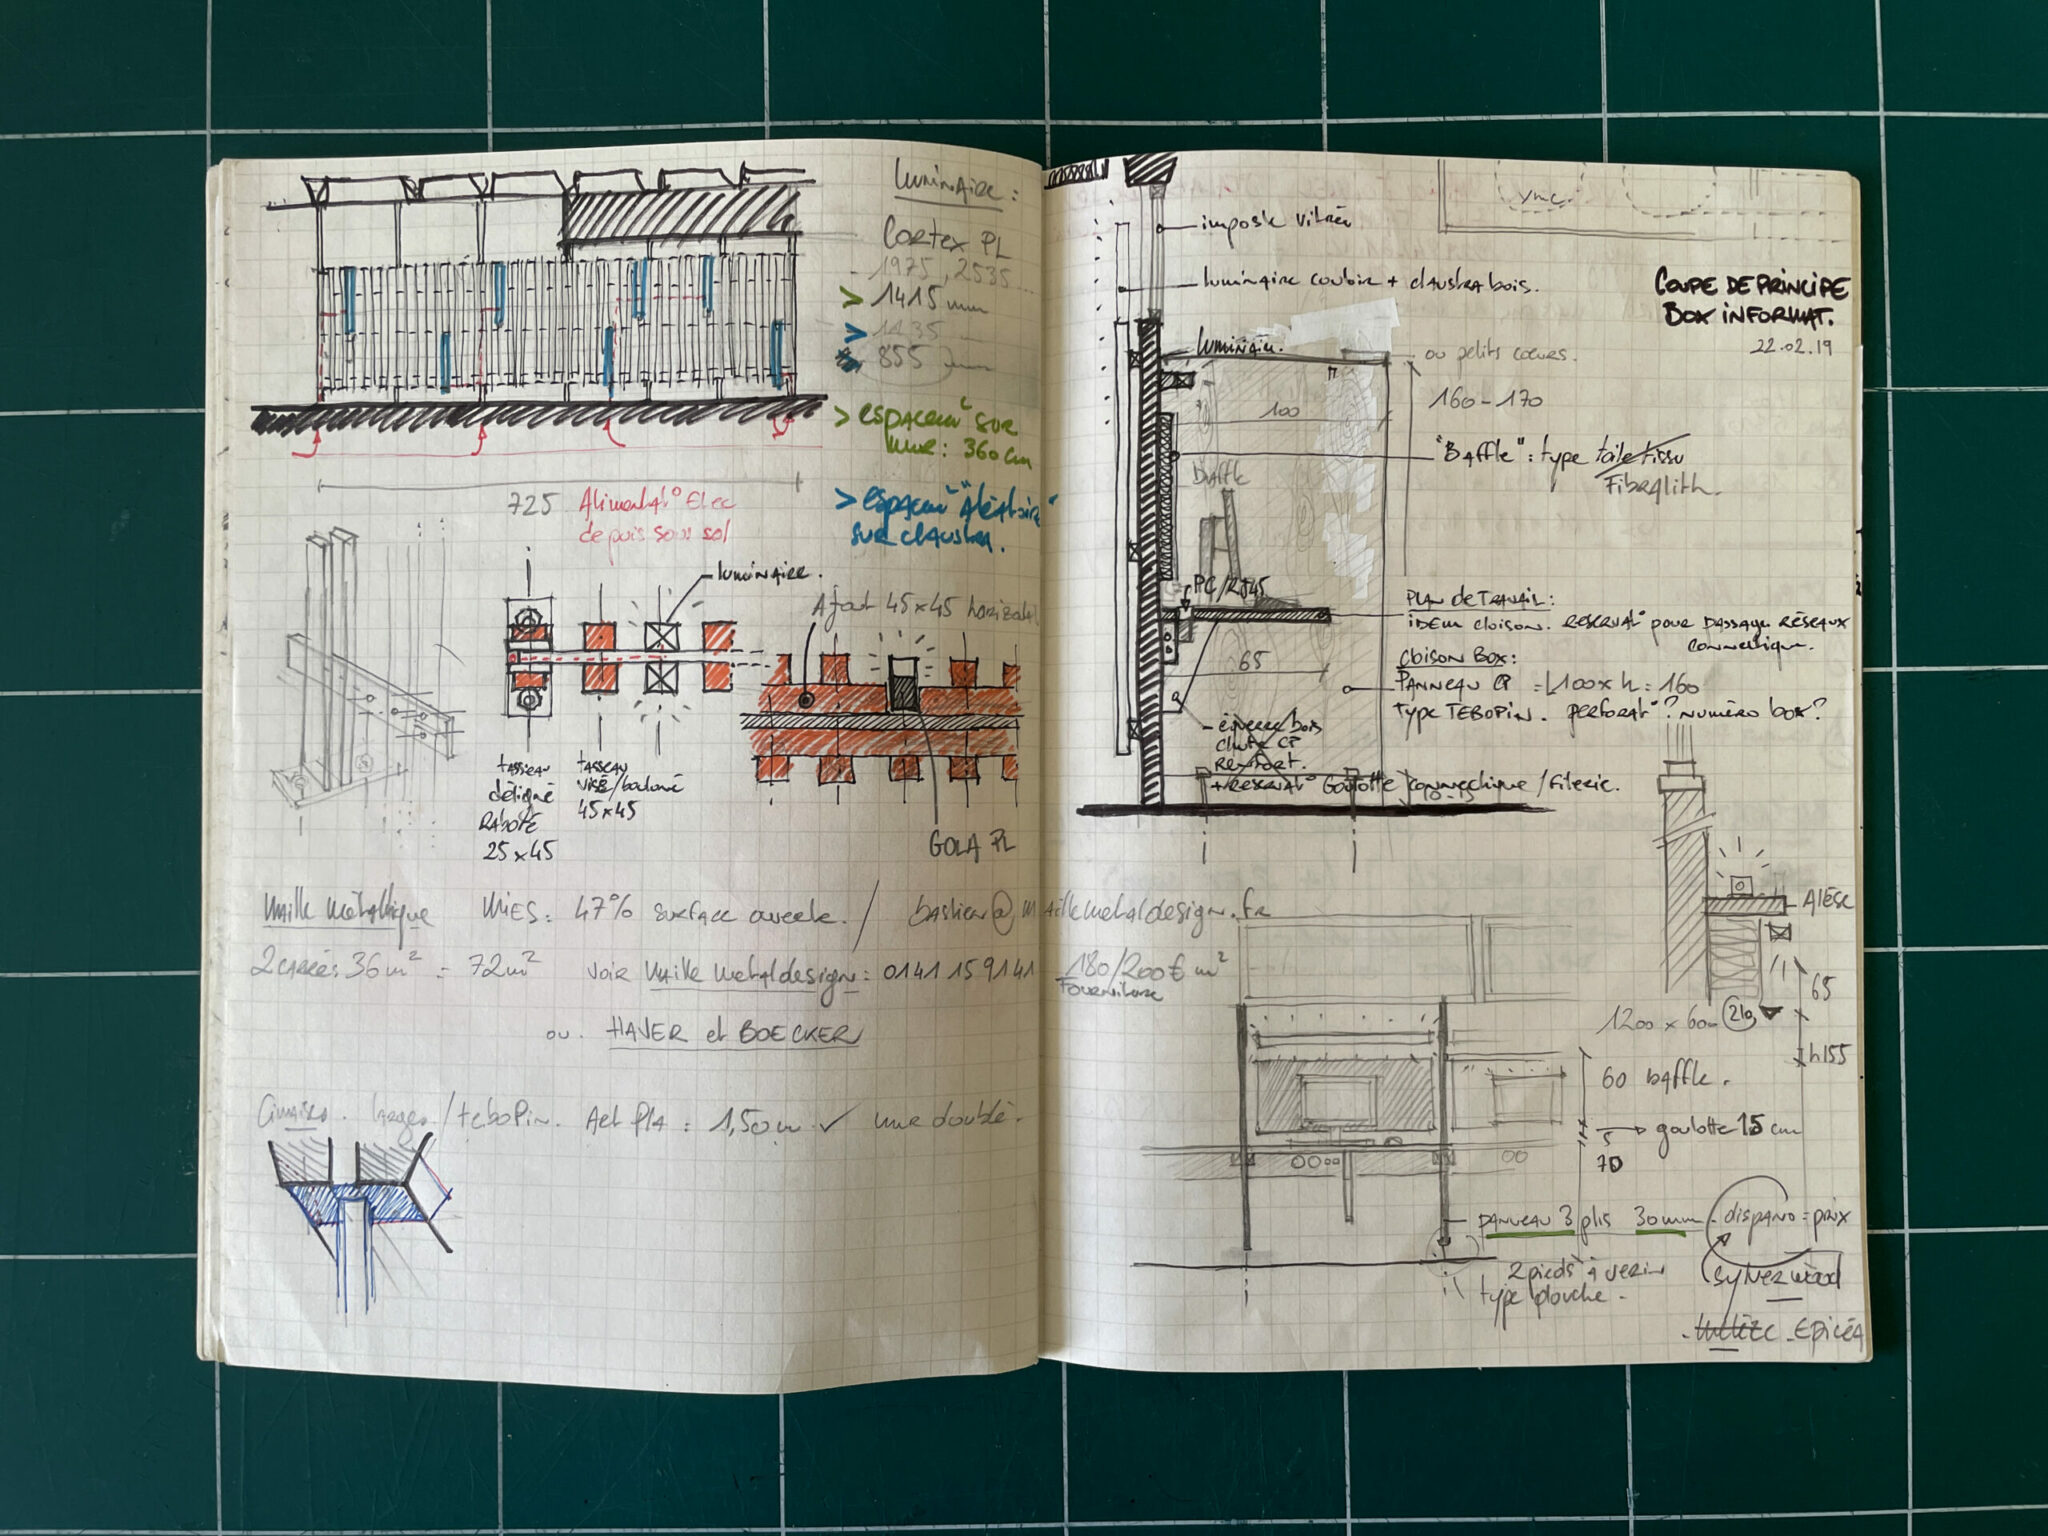 luminaire :
Cortex PL
- 1975, 2535 ...
> 1415 mm
> 1435
855 mm
> espacemt sur
mur : 360 cm
> espacemt "Aléatoire"
sur claustra.
725
Alimentat° Elec
depuis sous sol
luminaire.
Ajout 45x45 horizontal
tasseau
déligné
Raboté
25x45
tasseau
visé/boulonné
45x45
GOLA PL
Maille métallique
MIES : 47% surface ouverte. / bastien@maillemetaldesign.fr
2 carrés 36 m² = 72 m²
voir Maille metaldesign : 01 41 15 91 41
180/200€ m²
Fourniture
ou. HAVER et BOECKER
Cimaises. larges/tebopin. Act PLA = 1,50 m ✓ mur doublé.
VMC
imposte vitrée
luminaire couloir + claustra bois.
COUPE DE PRINCIPE
BOX INFORMAT.
22.02.19
luminaire.
ou petits cœurs.
160-170
100
"Baffle" : type toile tissu
Fibralith.
Baffle
PC/RJ45
PLAN de TRAVAIL :
idem cloison. Reservat° pour passage réseaux
connectique.
65
Cloison Box :
Panneau CP = L100 x h = 160
type TEBOPIN. perforat° ? numéro box ?
équerre bois
chute CP
Renfort.
+ Reservat° Goulotte connectique / filerie.
Alèse
65
1200 x 600
210
h 155
60 baffle.
5
goulotte 15 cm
70
panneau 3 plis 30mm - dispano = prix
2 pieds à verin
type douche.
Sylver wood
- Mélèze - Epicéa